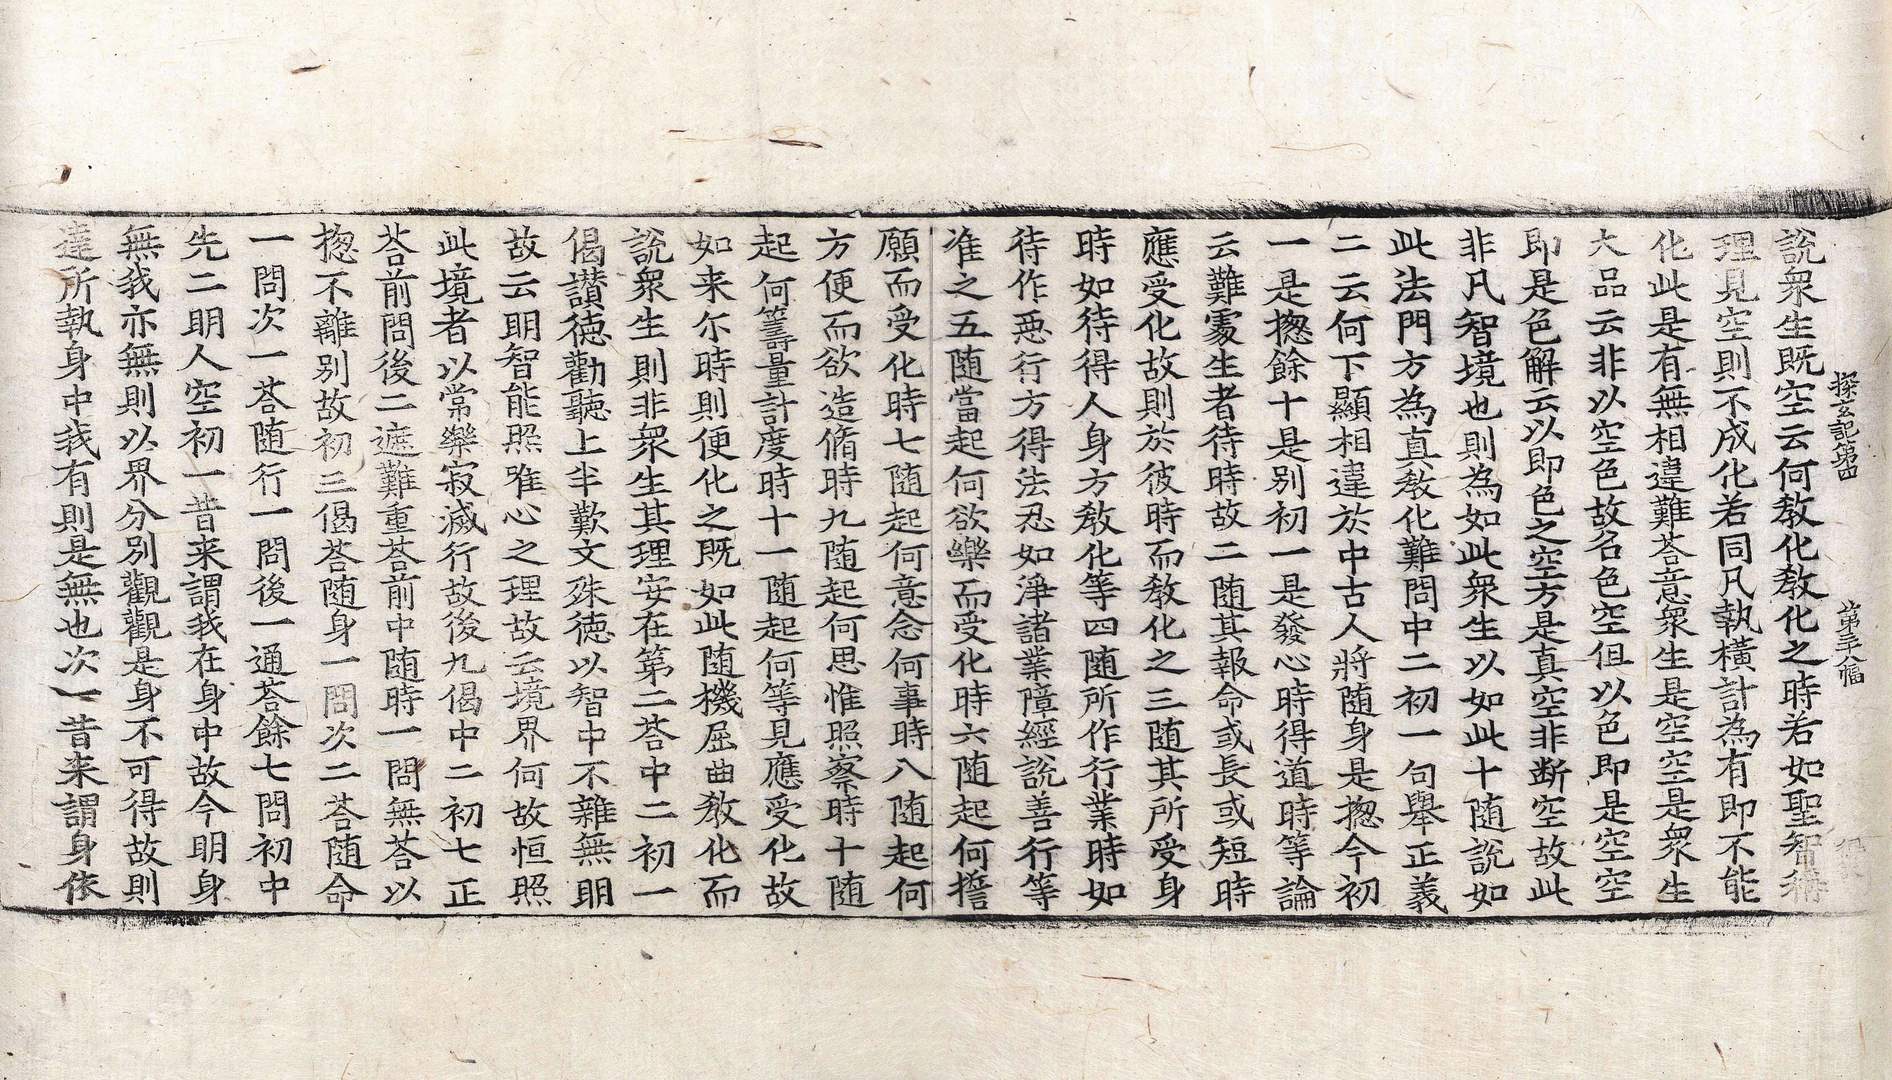 探玄記第四 第三十八幅
說衆生既空云何教化教化之時若如聖智稱
理見空則不成化若同凡執橫計為有即不能
化此是有無相違難荅意衆生是空空是衆生
大品云非以空色故名色空但以色即是空空
即是色解云以即色之空方是真空非断空故此
非凡智境也則為如此衆生以如此十随說如
此法門方為真教化難問中二初一句舉正義
二云何下顯相違於中古人將随身是揔今初
一是揔餘十是别初一是發心時得道時等論
云難處生者待時故二随其報命或長或短時
應受化故則於彼時而教化之三随其所受身
時如待得人身方教化等四随所作行業時如
待作惡行方得法忍如淨諸業障經說善行等
准之五随當起何欲樂而受化時六随起何擔
願而受化時七随起何意念何事時八随起何
方便而欲造脩時九随起何思惟照察時十随
起何籌量計度時十一随起何等見應受化故
如来尓時則便化之既如此随機屈曲教化而
說衆生則非衆生其理安在第二荅中二初一
偈讃徳勸聽上半歎文殊徳以智中不雜無明
故云明智能照唯心之理故云境界何故恒照
此境者以常樂寂滅行故後九偈中二初七正
荅前問後二遮難重荅前中随時一問無荅以
揔不離别故初三偈荅随身一問次二荅随命
一問次一荅随行一問後一通荅餘七問初中
先二明人空初一昔来謂我在身中故今明身
無我亦無則以界分别觀觀是身不可得故則
達所執身中我有則是無也次一昔来謂身依